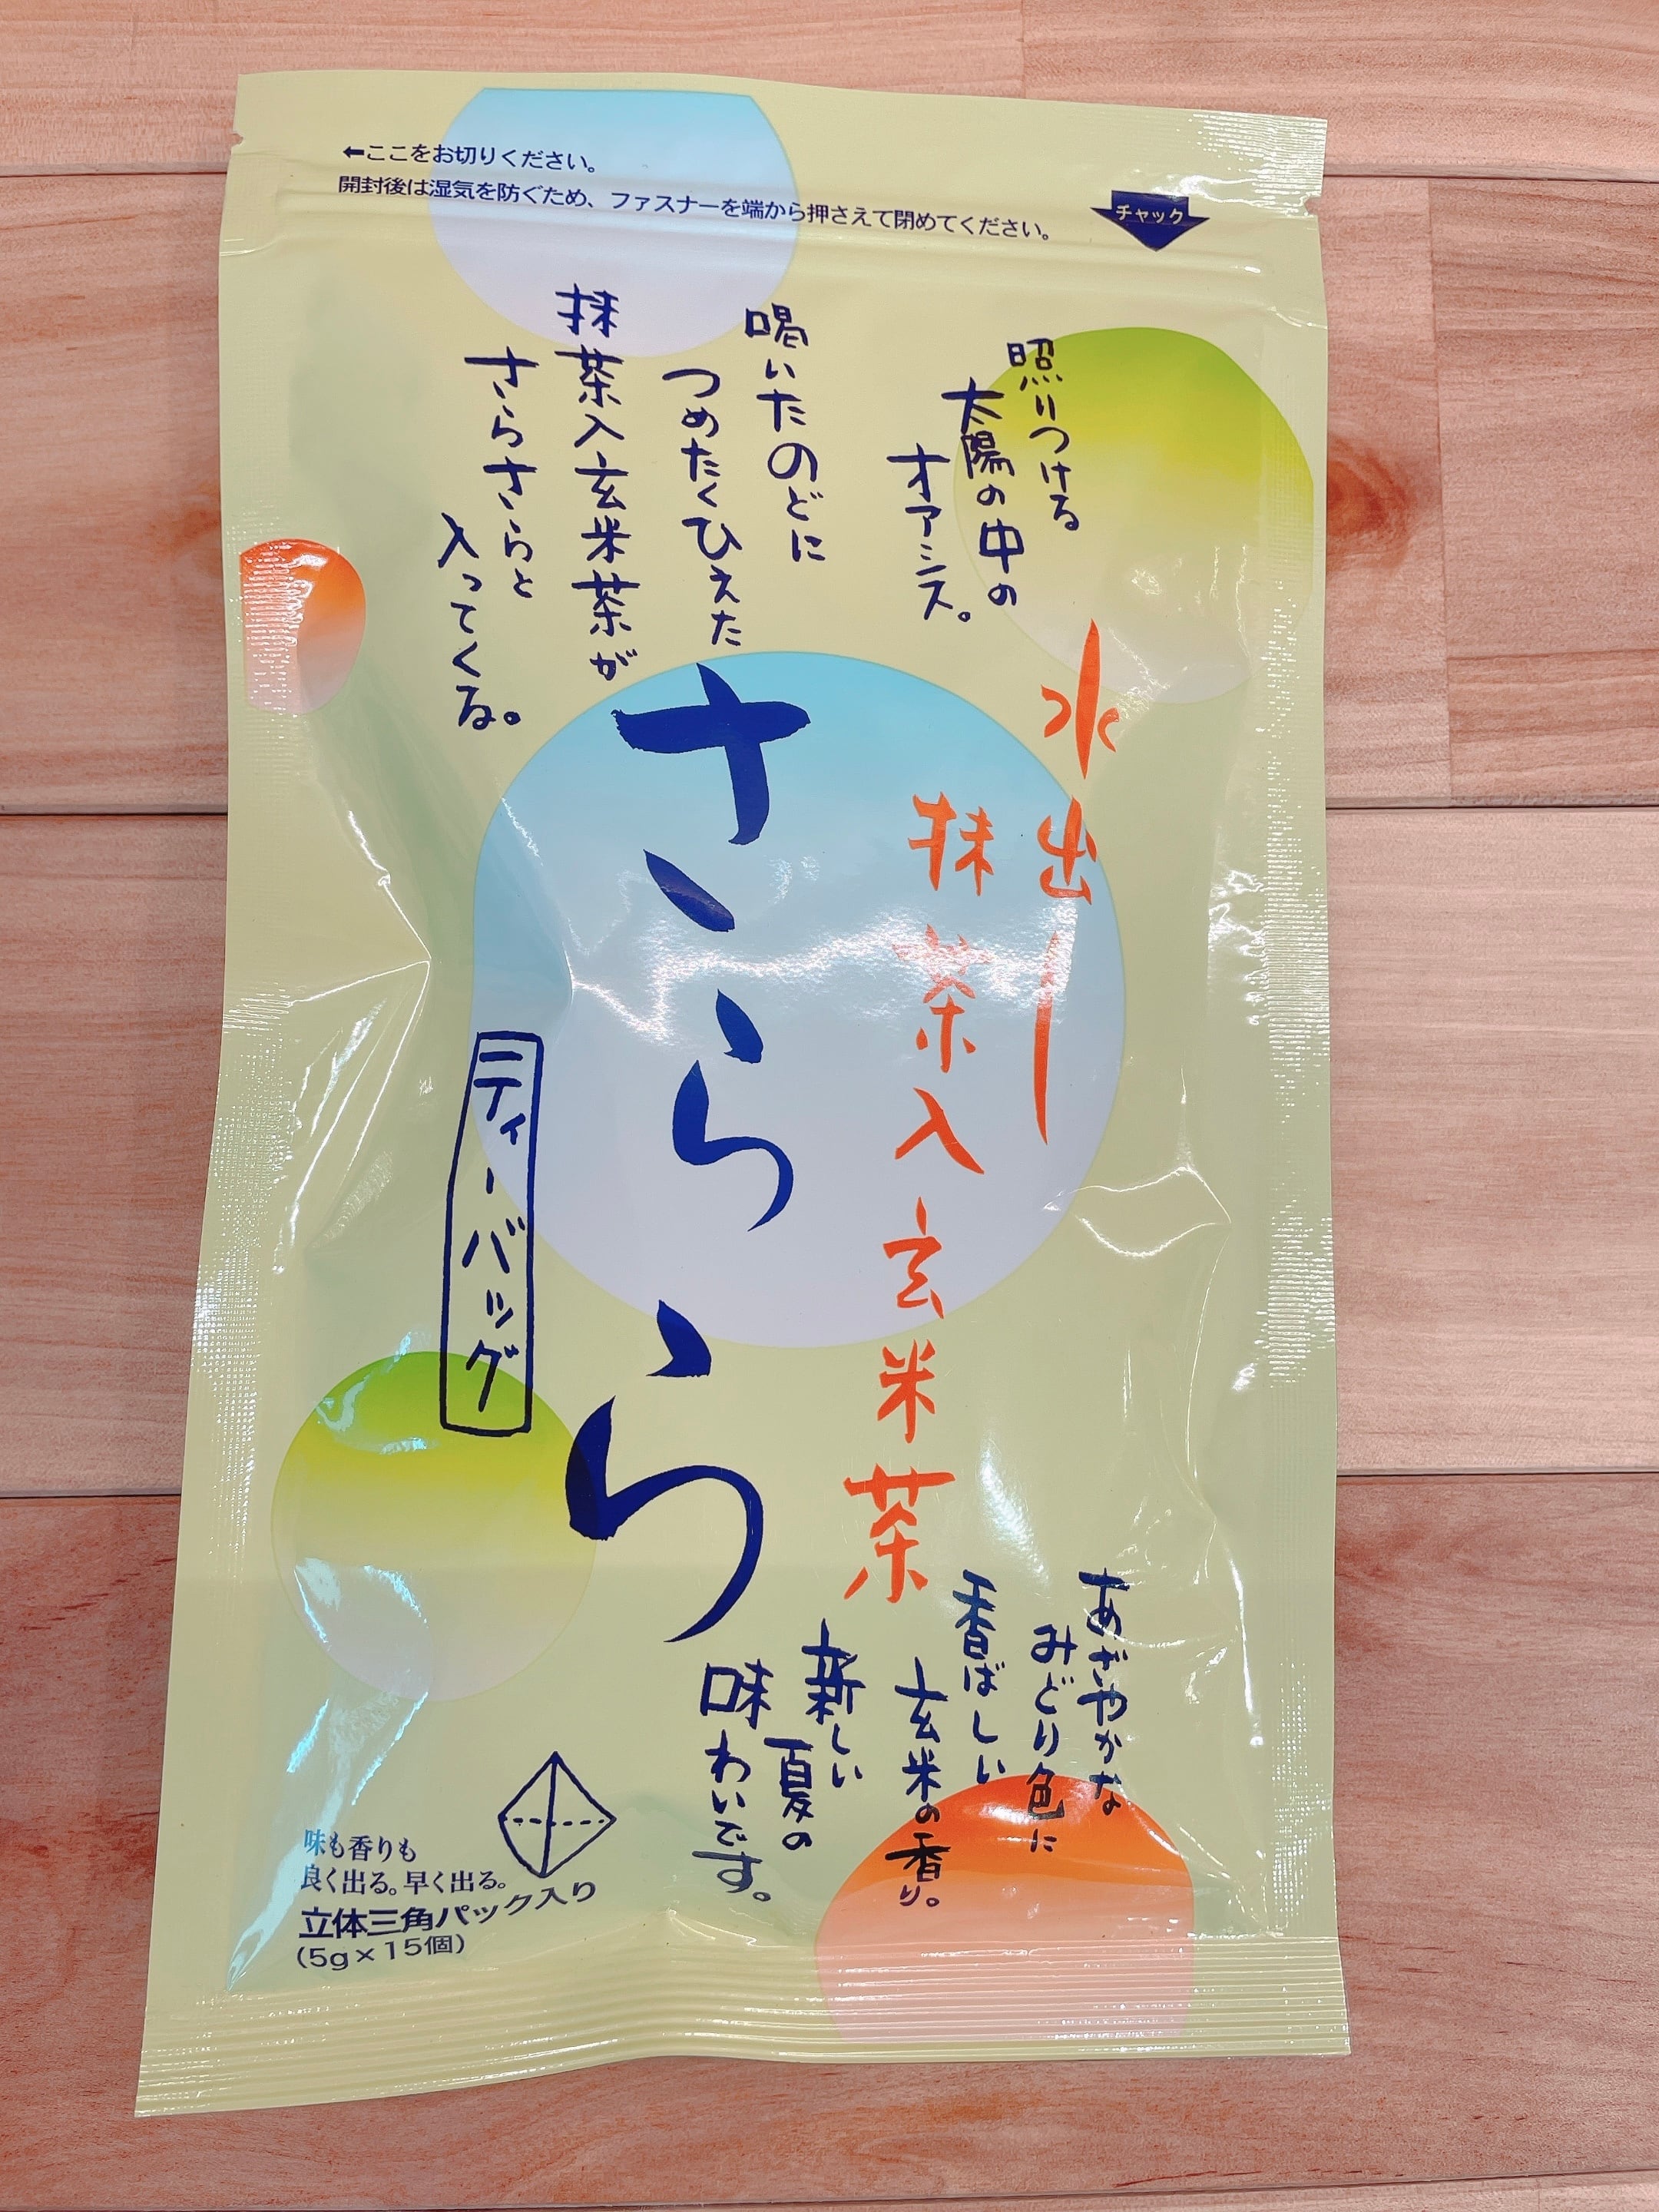 ←ここをお切りください。
開封後は湿気を防ぐため、ファスナーを端から押さえて閉めてください。
チャック
照りつける
太陽の中の
オアシス。
喝いたのどに
つめたくひえた
抹茶入玄米茶が
さらさらと
入ってくる。
水出し
抹茶入玄米茶
さらら
ティーバッグ
あざやかな
みどり色に
香ばしい
玄米の香り。
新しい
夏の
味わいです。
味も香りも
良く出る。早く出る。
立体三角パック入り
(5g×15個)